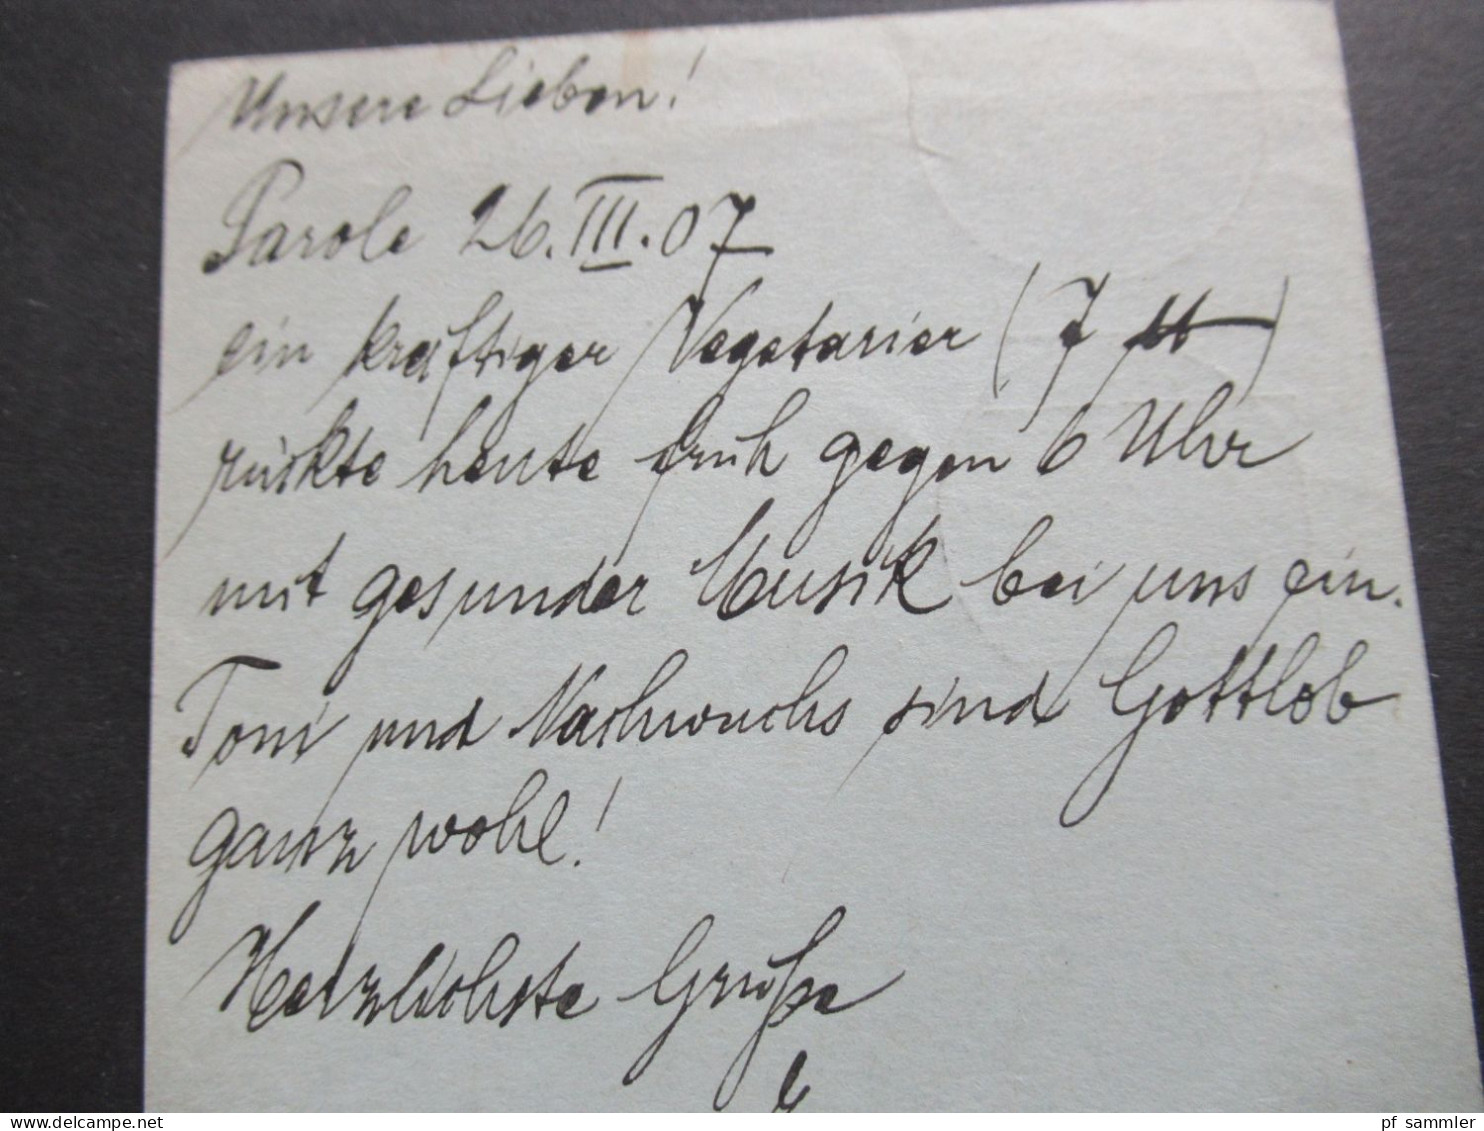 Unsere Lieben!
Parole 26.III.07
ein kräftiger Vegetarier (7 ℔)
rückte heute früh gegen 6 Uhr
mit gesunder Musik bei uns ein.
Toni und Nachwuchs sind Gottlob
ganz wohl!
Herzlichste Grüße
pf_sammler
www.delcampe.net